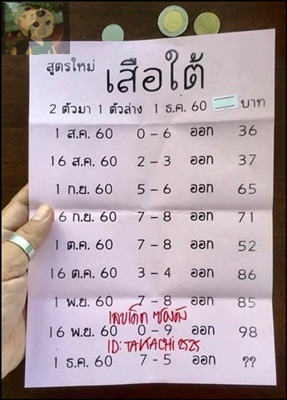 สูตรใหม่
เสือใต้
2 ตัวมา 1 ตัวล่าง 1 ธ.ค. 60 บาท
1 ส.ค. 60 0 - 6 ออก 36
16 ส.ค. 60 2 - 3 ออก 37
1 ก.ย. 60 5 - 6 ออก 65
16 ก.ย. 60 7 - 8 ออก 71
1 ต.ค. 60 7 - 8 ออก 52
16 ต.ค. 60 3 - 4 ออก 86
1 พ.ย. 60 7 - 8 ออก 85
เลขเด็ด ซองดัง
16 พ.ย. 60 0 - 9 ออก 98
ID: TAKACHI2525
1 ธ.ค. 60 7 - 5 ออก ??